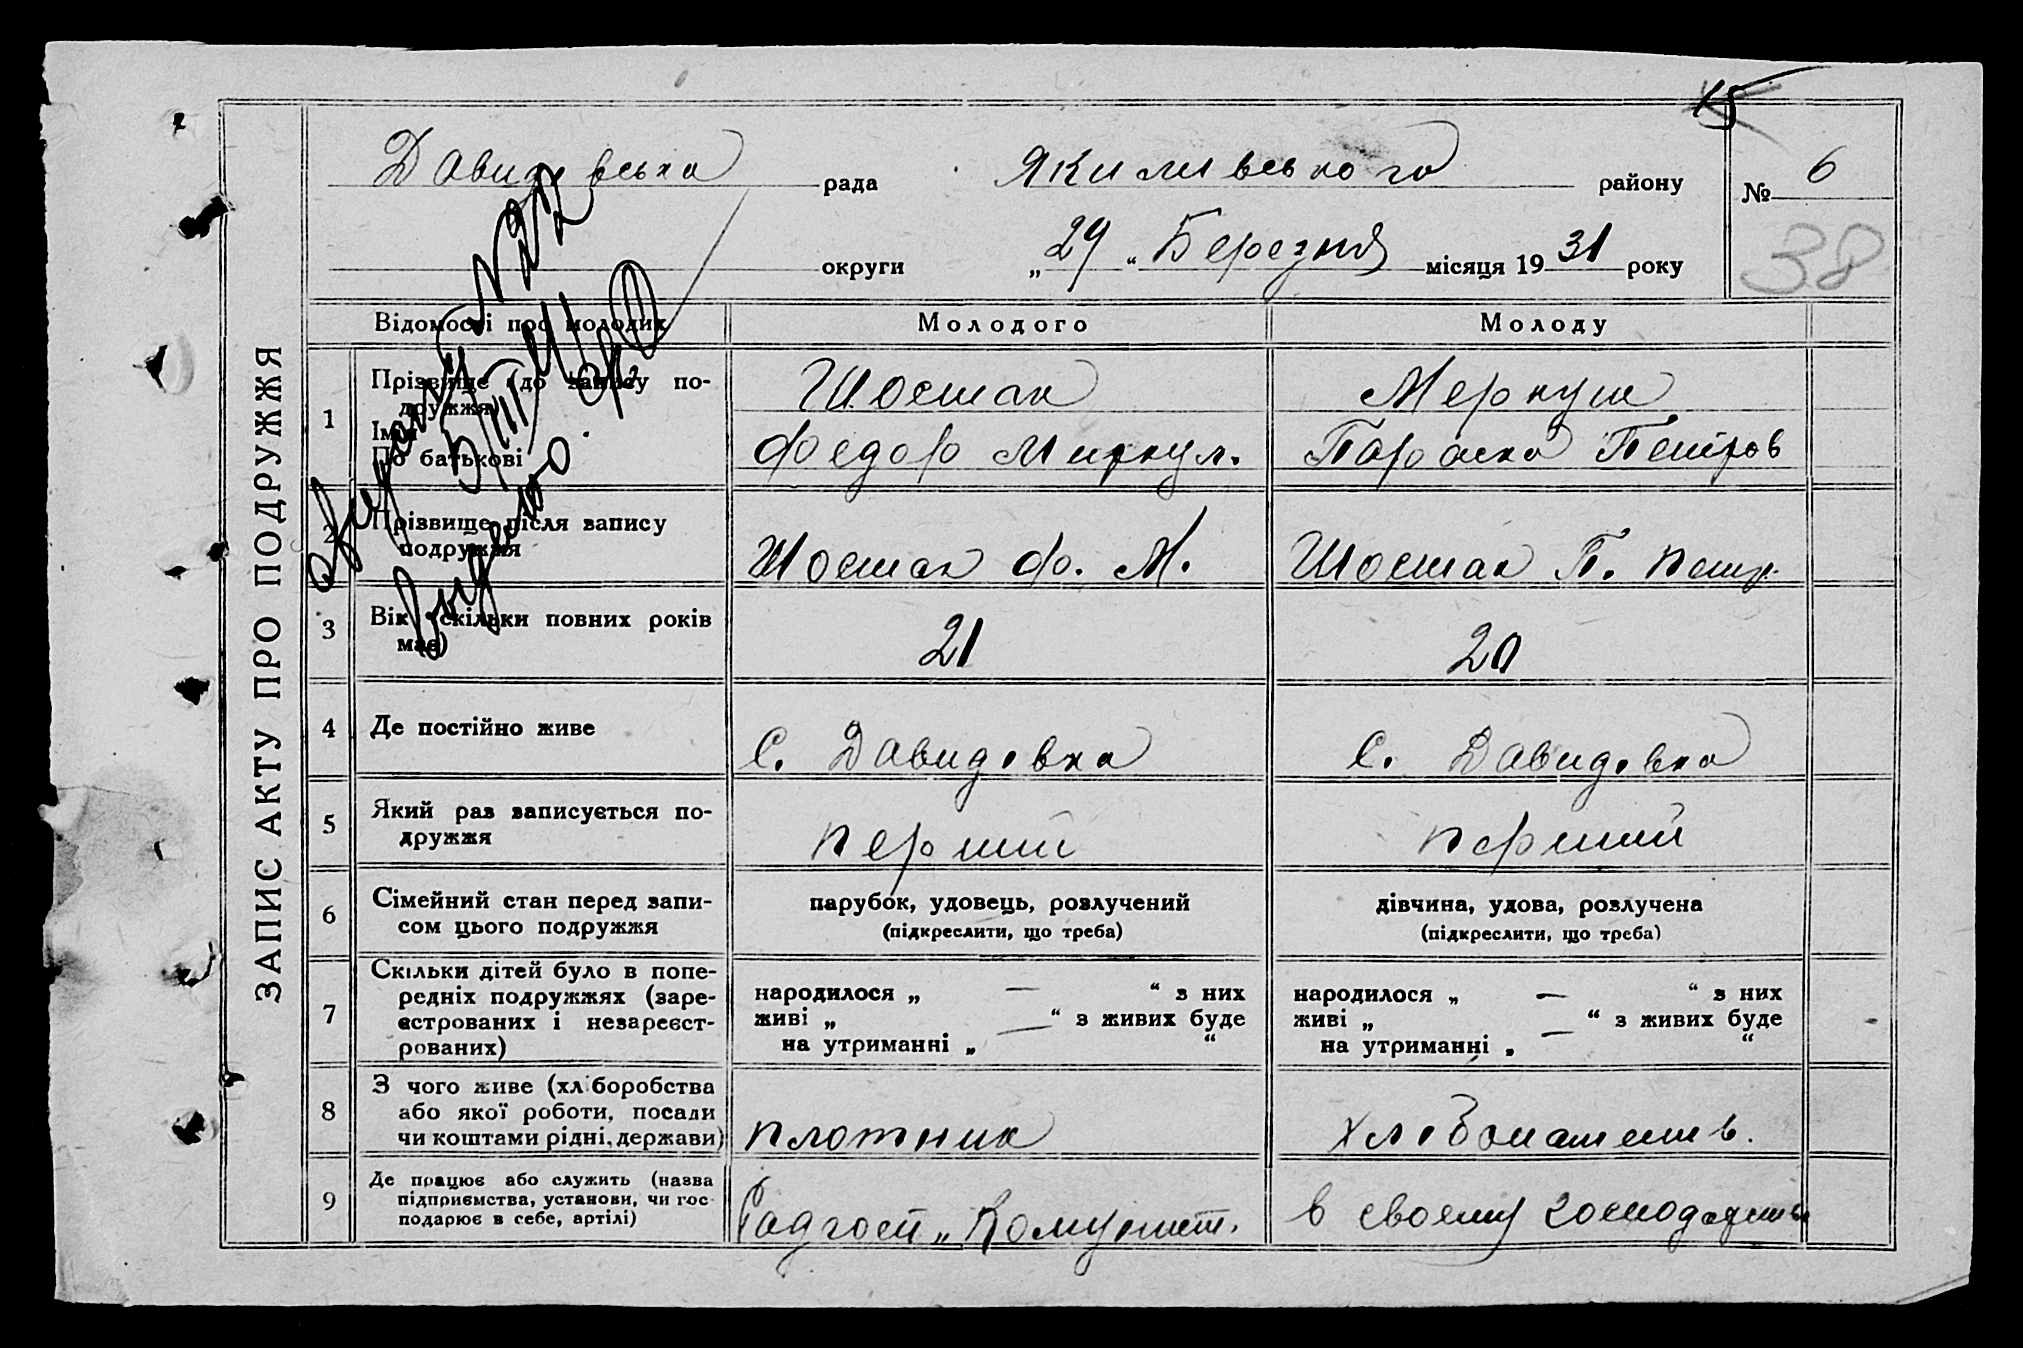 15
Давидівська рада Якимівського району № 6
округи „29“ Березня місяця 1931 року
38
ЗАПИС АКТУ ПРО ПОДРУЖЖЯ
Відомості про молодих Молодого Молоду
1 Прізвище (до запису подружжя) Шостак Меркуш
Ім'я
По батькові Федор Меркул. Параска Петров
2 Прізвище після запису
подружжя Шостак Ф. М. Шостак П. Петр.
3 Вік (скільки повних років
має) 21 20
4 Де постійно живе С. Давидовка С. Давидовка
5 Який раз записується по-
дружжя перший перший
6 Сімейний стан перед запи- парубок, удовець, розлучений дівчина, удова, розлучена
сом цього подружжя (підкреслити, що треба) (підкреслити, що треба)
7 Скільки дітей було в попе-
редніх подружжях (заре- народилося „ — “ з них народилося „ — “ з них
єстрованих і незареєст- живі „ — “ з живих буде живі „ — “ з живих буде
рованих) на утриманні „ “ на утриманні „ “
8 З чого живе (хліборобства
або якої роботи, посади
чи коштами рідні, держави) плотник хлібопашеств.
9 Де працює або служить (назва
підприємства, установи, чи гос-
подарює в себе, артілі) Радгосп „Комуніст. в своєму